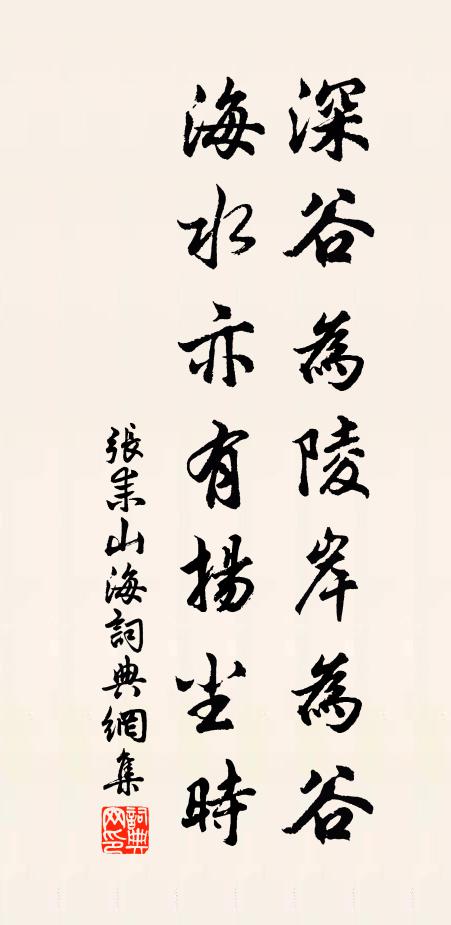 深谷為陵岸為谷
海水亦有揚尘時
張耒山海詞典網集
詞典网印